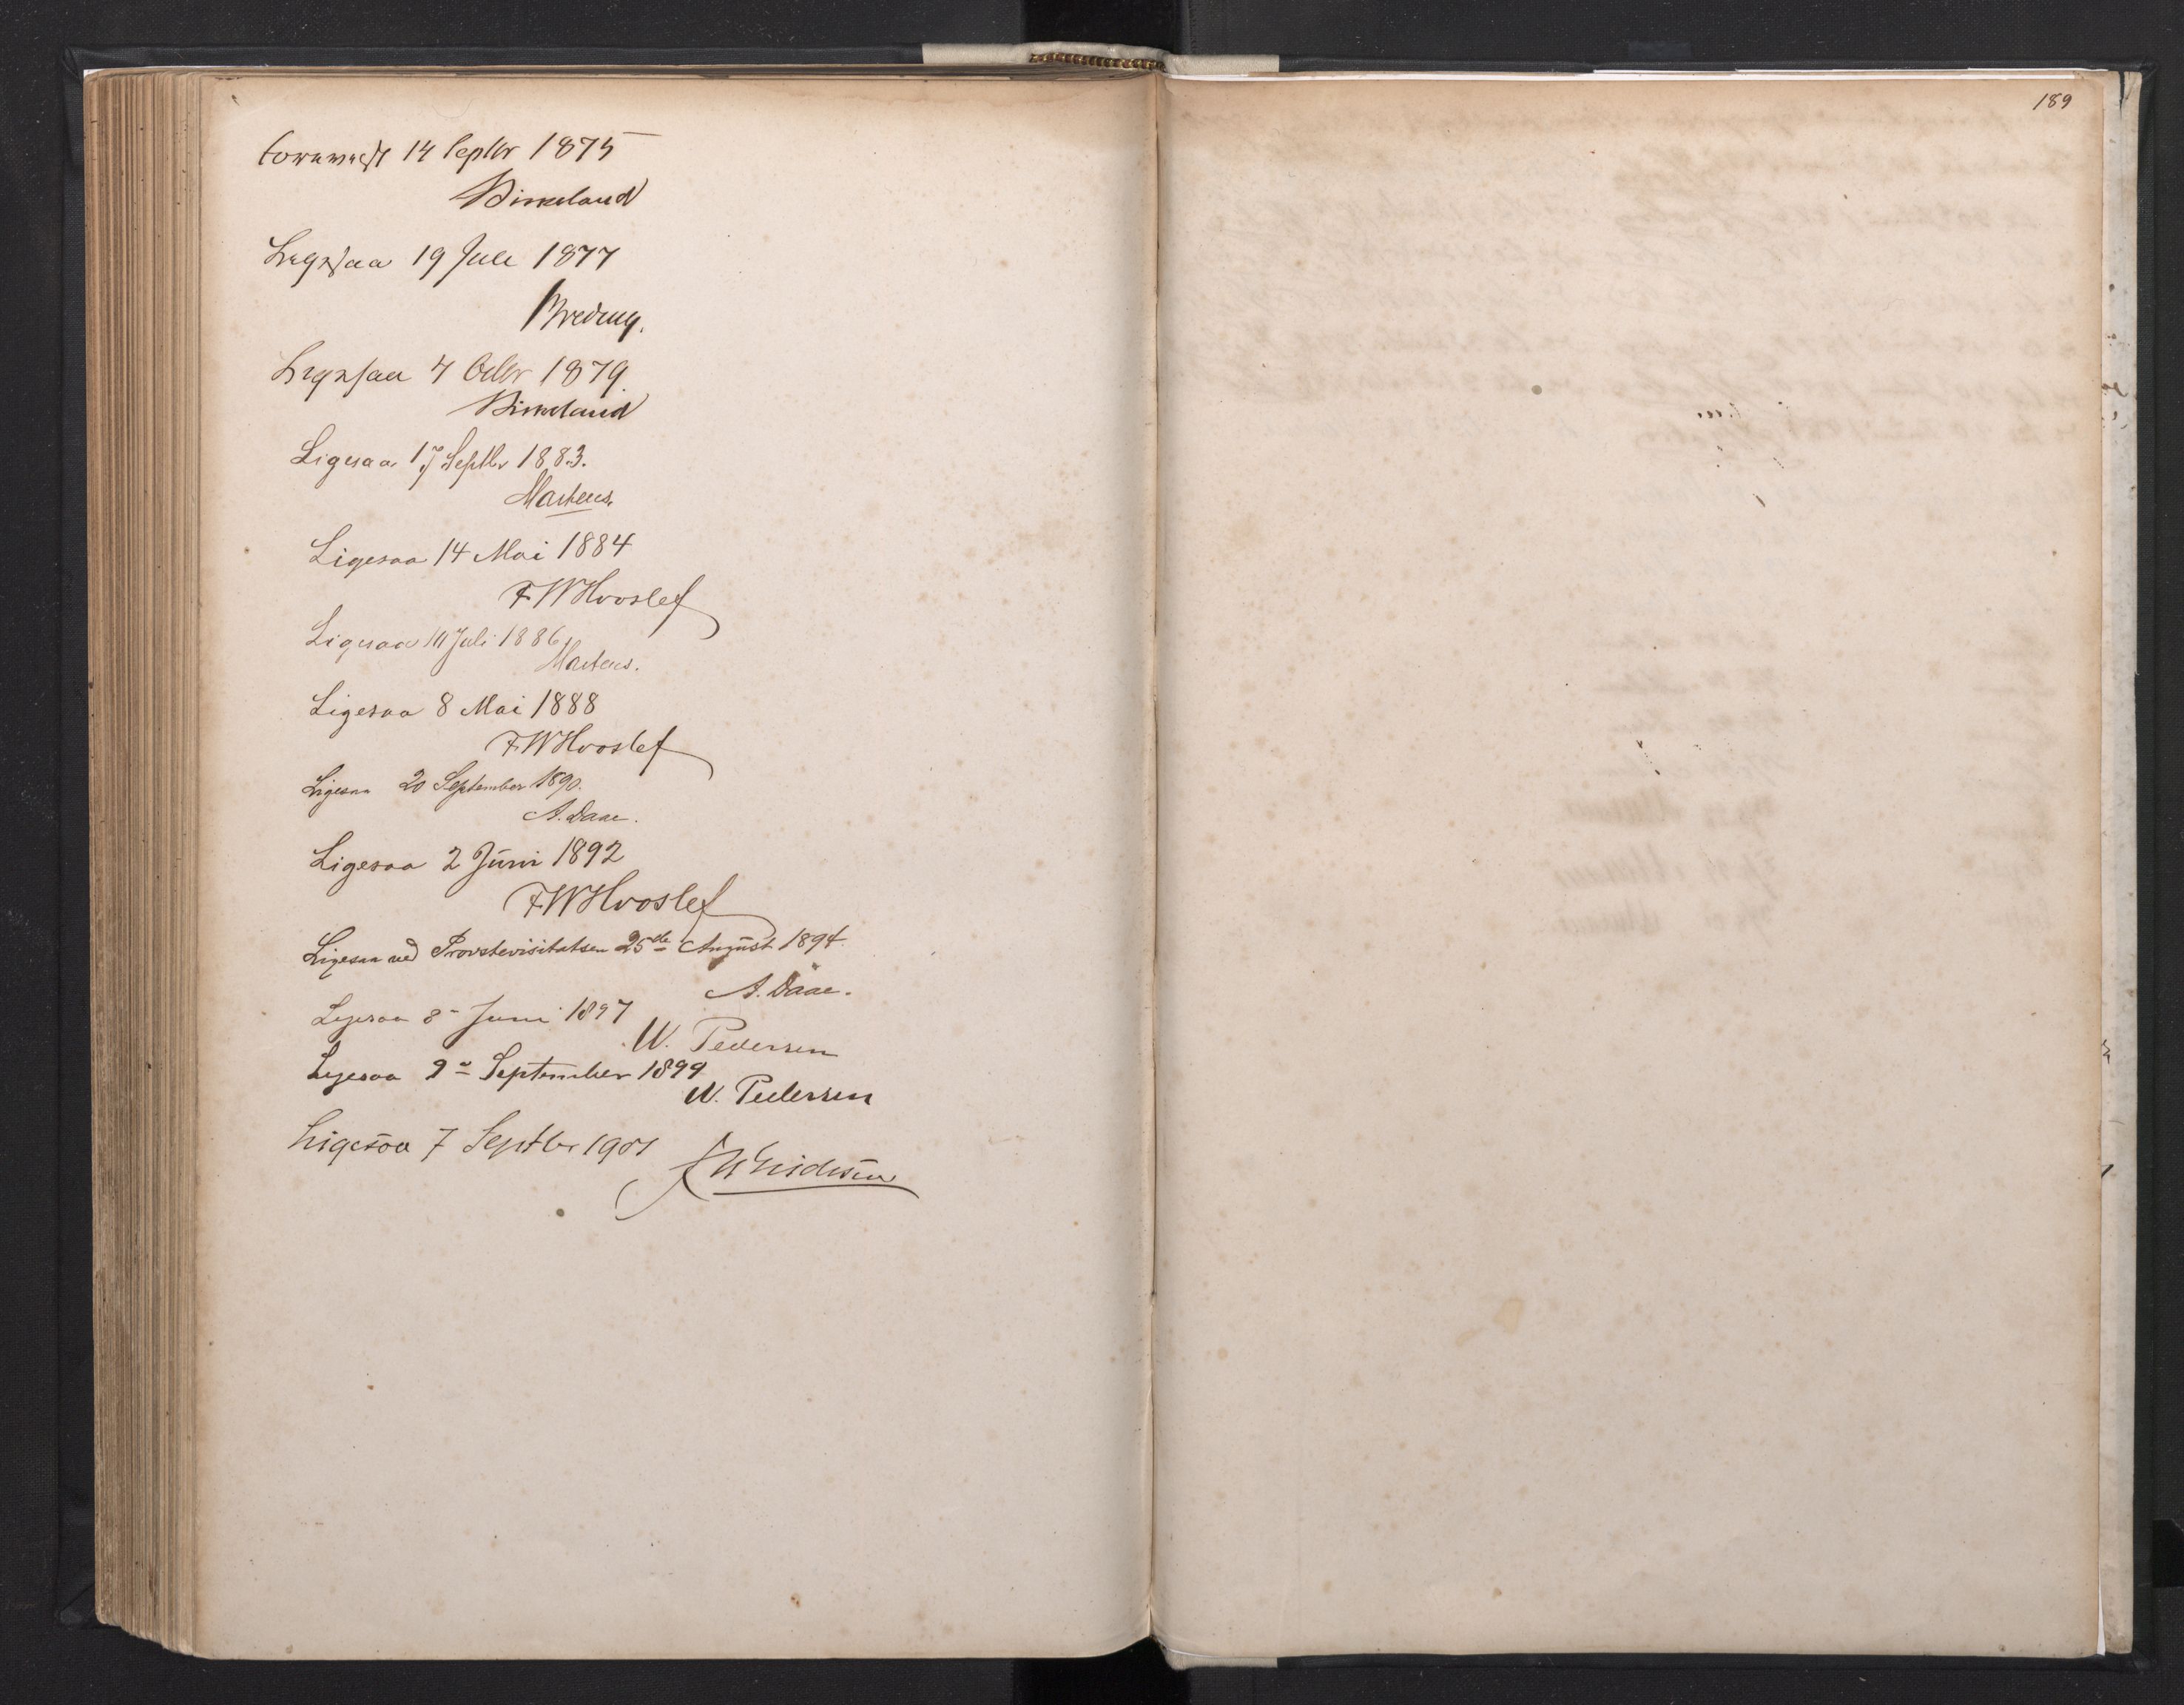 forevist 14 Septbr 1875
Birkeland
Ligesaa 19 Juli 1877
Ligesaa 7 Octbr 1879
Birkeland
Ligesaa 17 Septbr 1883.
Martens.
Ligesaa 14 Mai 1884
FWHvoslef
Ligesaa 10 Juli 1886
Martens.
Ligesaa 8 Mai 1888
F.WHvoslef
Ligesaa 20 September 1890.
A. Daae.
Ligesaa 2 Juni 1892
FWHvoslef
Ligesaa ved Provstevisitatsen 25de August 1894.
A. Daae.
Ligesaa 8- Juni 1897
W. Pedersen
Ligesaa 9- September 1899
W. Pedersen
Ligesaa 7 Septbr 1901
189